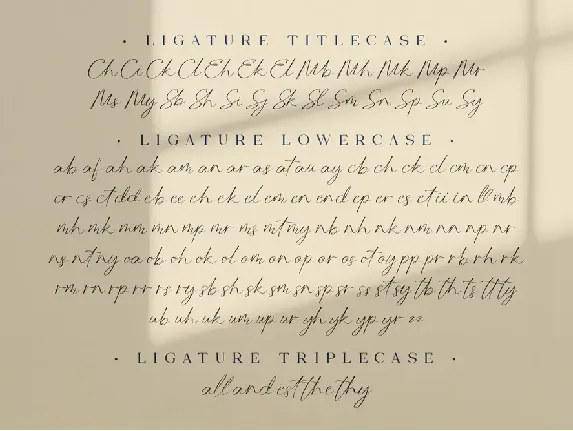 · LIGATURE TITLECASE ·
Ch Ci Ck Cl Eh Ek El Mb Mh Mk Mp Mr
Ms My Sb Sh Si Sj Sk Sl Sm Sn Sp Su Sy
· LIGATURE LOWERCASE ·
ab af ah ak am an ar as at au ay cb ch ck cl cm cn cp
cr cs ct dd eb ee eh ek el em en end ep er es et ii in ll mb
mh mk mm mn mp mr ms mt my nb nh nk nm nn np nr
ns nt ny oa ob oh ok ol om on op or os ot oy pp pr rb rh rk
rm rn rp rr rs ry sb sh sk sm sn sp sr ss st sy tb th ts tt ty
ub uh uk um up ur yh yk yp yr zz
· LIGATURE TRIPLECASE ·
all and est the thy